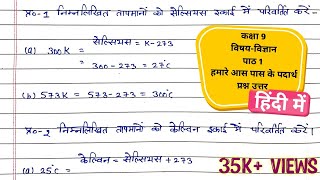 प्र०-1 निम्नलिखित तापमानों को सेल्सियस इकाई में परिवर्तित करें-
(a) 300K = सेल्सियस = K-273
= 300-273 = 27°C
(b) 573K = 573-273 = 300°C
प्र०-2 निम्नलिखित तापमानों को केल्विन इकाई में परिवर्तित करें।
केल्विन = सेल्सियस +273
(a) 25°C =
कक्षा 9
विषय-विज्ञान
पाठ 1
हमारे आस पास के पदार्थ
प्रश्न उत्तर
हिंदी में
35K+ VIEWS